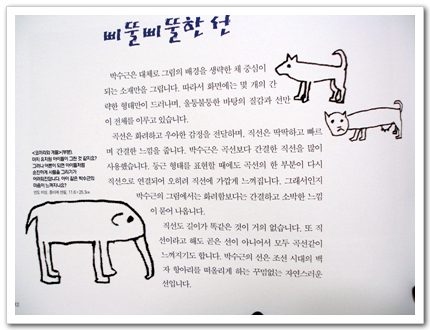 삐뚤삐뚤한 선
박수근은 대체로 그림의 배경을 생략한 채 중심이
되는 소재만을 그립니다. 따라서 화면에는 몇 개의 간
략한 형태만이 드러나며, 울퉁불퉁한 바탕의 질감과 선만
이 전체를 이루고 있습니다.
곡선은 화려하고 우아한 감정을 전달하며, 직선은 딱딱하고 빠르
며 간결한 느낌을 줍니다. 박수근은 곡선보다 간결한 직선을 많이
사용했습니다. 둥근 형태를 표현할 때에도 곡선의 한 부분이 다시
직선으로 연결되어 오히려 직선에 가깝게 느껴집니다. 그래서인지
박수근의 그림에서는 화려함보다는 간결하고 소박한 느낌
이 묻어 나옵니다.
직선도 길이가 똑같은 것이 거의 없습니다. 또 직
선이라고 해도 곧은 선이 아니어서 모두 곡선같이
느껴지기도 합니다. 박수근의 선은 조선 시대의 백
자 항아리를 떠올리게 하는 꾸밈없는 자연스러운
선입니다.
<코끼리와 개들>(부분),
마치 초등생 아이들이 그린 것 같지요?
그러나 어른이 되면 아이들처럼
순진하게 사물을 그리기가
어려워진답니다. 아이 같은 박수근의
마음이 느껴지나요?